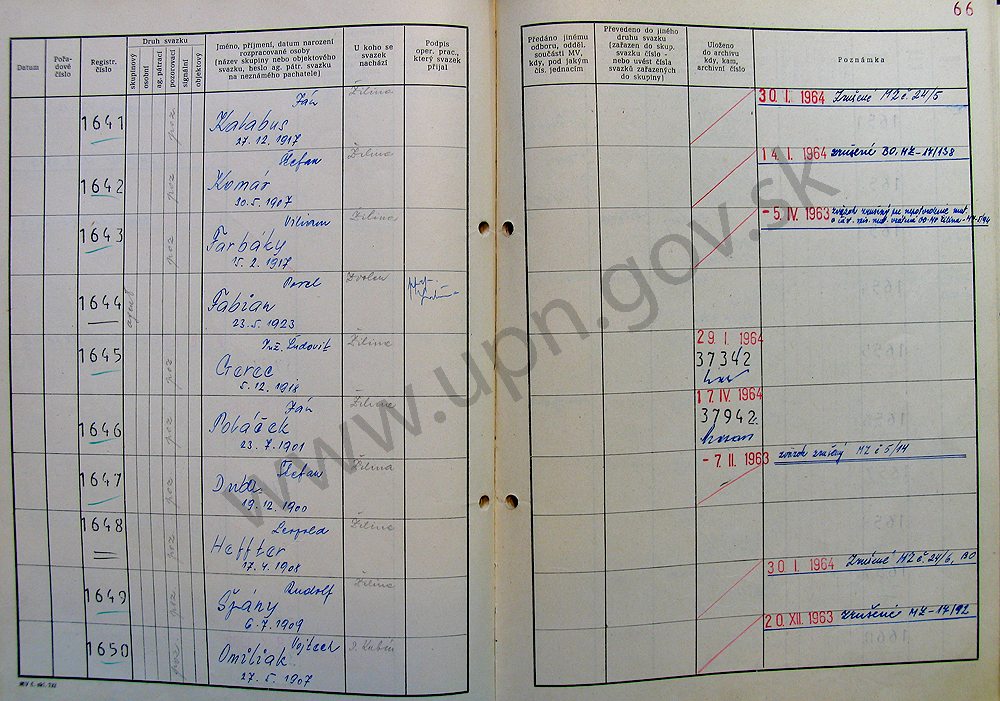 66
Datum
Pořadové číslo
Registr. číslo
Druh svazku
skupinový
osobní
ag. pátrací
pozorovací
signální
objektový
Jméno, příjmení, datum narození
rozpracované osoby
(název skupiny nebo objektového
svazku, heslo ag. pátr. svazku
na neznámého pachatele)
U koho se
svazek
nachází
Podpis
oper. prac.,
který svazek
přijal
Předáno jinému
odboru, odděl.
součásti MV,
kdy, pod jakým
čís. jednacím
Převedeno do jiného
druhu svazku
(zařazen do skup.
svazku číslo -
nebo uvést čísla
svazků zařazených
do skupiny)
Uloženo
do archivu
kdy, kam,
archivní číslo
Poznámka
1641 poz Ján Žilina
Kalabus
27. 12. 1917
30. I. 1964 Zrušené MZ č. 24/5
1642 poz Štefan Žilina
Komár
30. 5. 1907
14. I. 1964 zrušené BO, MZ-17/138
1643 poz Viliam Žilina
Farbaky
15. 2. 1917
- 5. IV. 1963 zväzok zrušený
1644 agent Pavel Zvolen
Fabian
23. 5. 1923
1645 poz Inž. Ľudovít Žilina
Gerec
5. 12. 1918
29. I. 1964
37342
1646 poz Ján Žilina
Poláček
23. 7. 1901
17. IV. 1964
37942
1647 poz Štefan Žilina
Duda
19. 12. 1900
- 7. II. 1963 zväzok zrušený MZ č 5/14
1648 poz Leopold Žilina
Heffter
17. 4. 1908
1649 poz Rudolf Žilina
Špány
6. 7. 1909
30 I. 1964 Zrušené MZ č. 24/6, BO
1650 poz Vojtech D. Kubín
Omiliak
27. 5. 1907
20. XII. 1963 zrušené MZ-17/92
www.upn.gov.sk